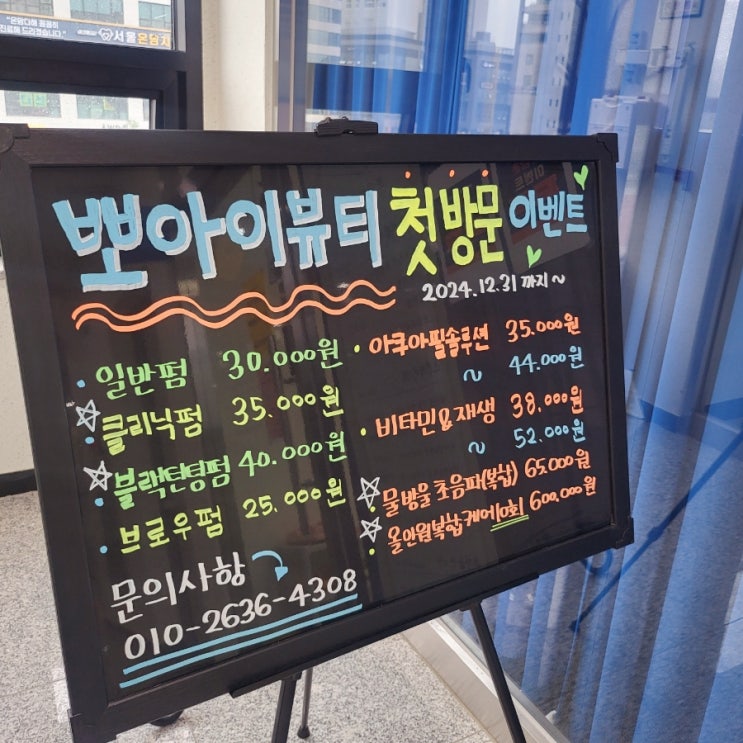 "온담다해 꼼꼼히
진료해 드리겠습니다."
서울온담치
뽀아이뷰티 첫방문 이벤트
2024.12.31 까지~
일반펌 30.000원
클리닉펌 35.000원
블랙틴팅펌 40.000원
브로우펌 25.000원
문의사항
010-2636-4308
아쿠아필솔루션 35.000원
~ 44.000원
비타민&재생 38.000원
~ 52.000원
물방울 초음파(복합) 65.000원
올인원복합케어10회 600.000원